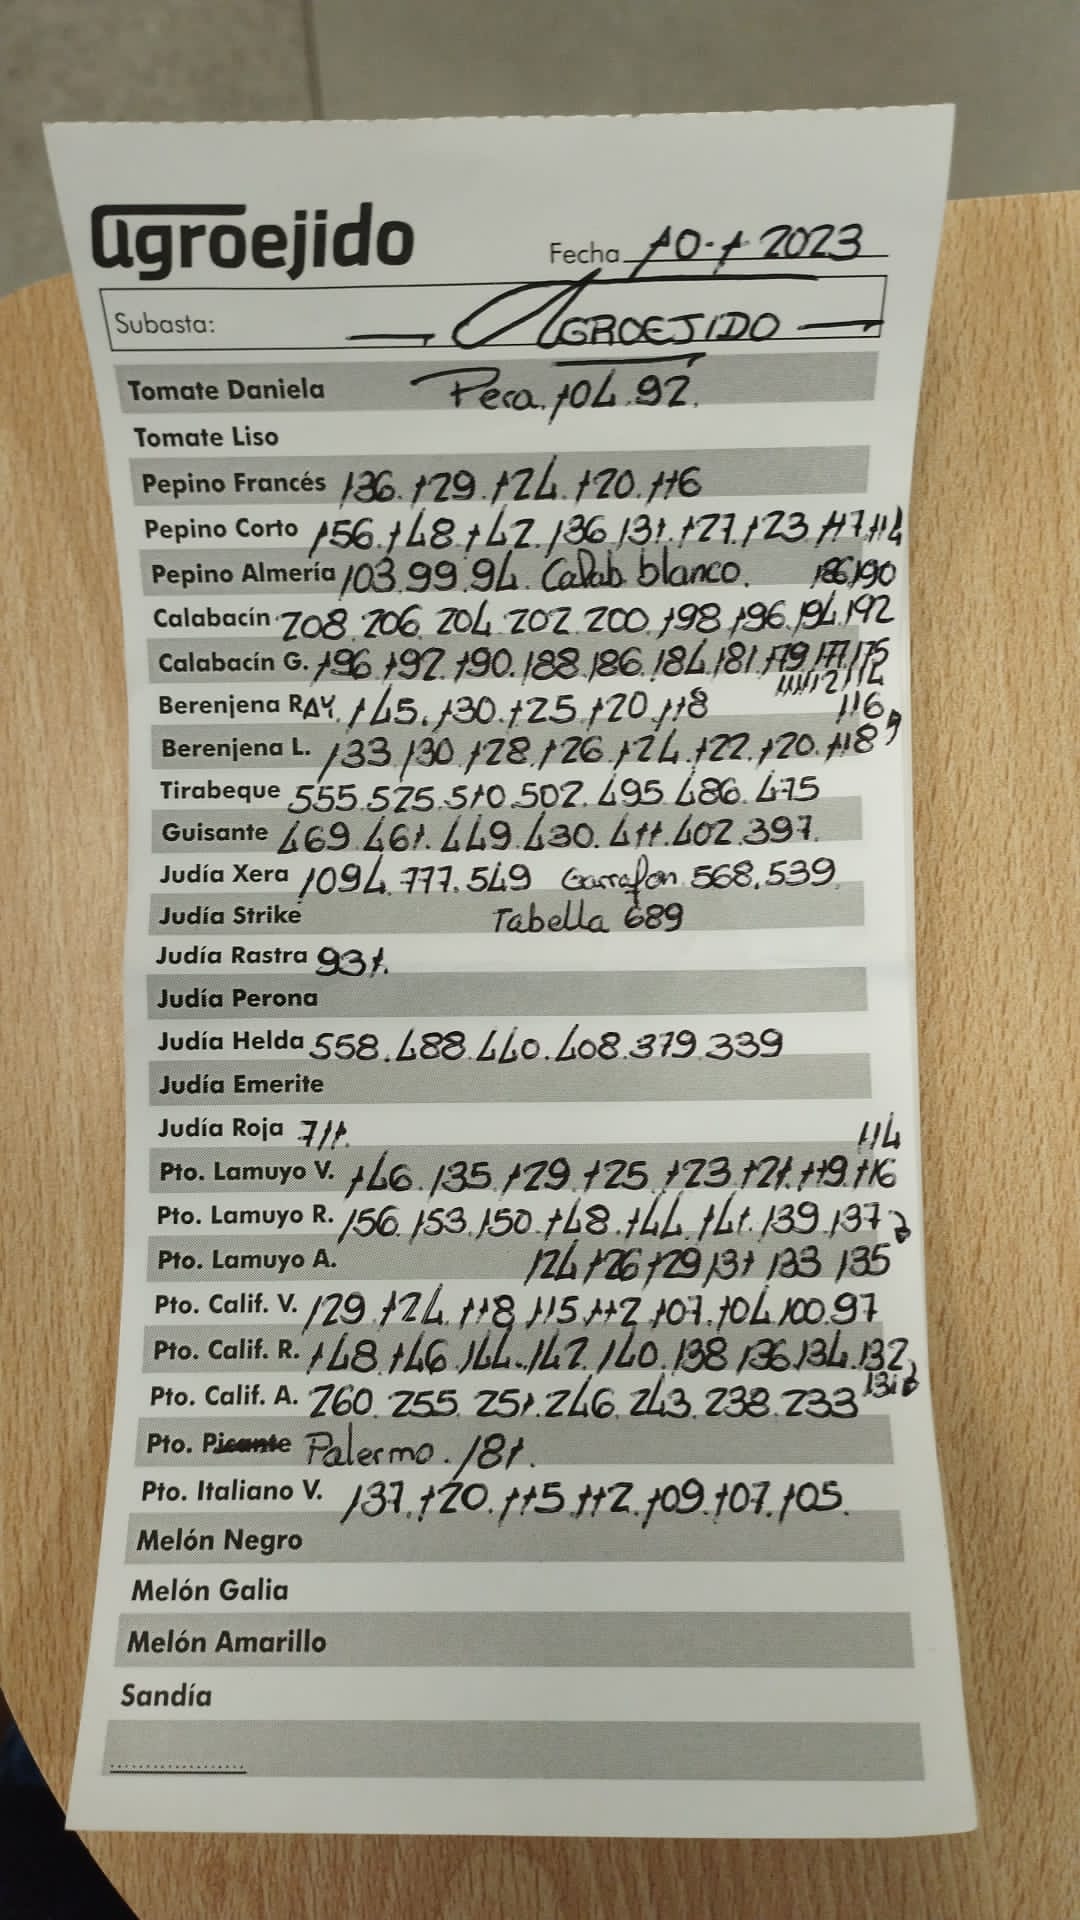 agroejido
Fecha 10-1 2023
Subasta: AGROEJIDO
Tomate Daniela Pera. 104.92.
Tomate Liso
Pepino Francés 136.129.124.120.116
Pepino Corto 156.148.142.136 131.127.123.117.114
Pepino Almería 103.99.94. Calab blanco. 186.190
Calabacín 208.206.204.202.200.198.196.194.192
Calabacín G. 196.192.190.188.186.184.181.179.177.175
112 114
Berenjena RAY. 145.130.125.120.118 116
Berenjena L. 133.130.128.126.124.122.120.118
Tirabeque 555.525.510.502.495.486.475
Guisante 469.461.449.430.411.402.397.
Judía Xera 1094.777.549 Garrafon 568.539
Judía Strike Tabella 689
Judía Rastra 931.
Judía Perona
Judía Helda 558.488.440.408.379.339
Judía Emerite
Judía Roja 711. 114
Pto. Lamuyo V. 146.135.129.125.123.121.119.116
Pto. Lamuyo R. 156.153.150.148.144.141.139.137
Pto. Lamuyo A. 124.126.129.131 133 135
Pto. Calif. V. 129.124.118.115.112.107.104.100.97
Pto. Calif. R. 148.146.144.142.140.138.136.134.132
Pto. Calif. A. 260.255.251.246.243.238.233 131
Pto. Picante Palermo. 181.
Pto. Italiano V. 137.120.115.112.109.107.105.
Melón Negro
Melón Galia
Melón Amarillo
Sandía